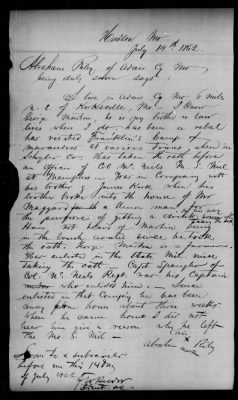 Hudson Mo
July 14th 1862
Abraham Riley of Adair Co Mo
being duly sworn says:
I live in Adair Co Mo 6 miles
n. E of Kirksville, Mo - I know
George Martin he is my brother in law
lives when I do has been a rebel
has visited Franklin's camp of
marauders at various times when in
Schyler Co. Has taken the oath before
an officer of Col McNeils M. S. Mil
at Memphis - Was in Company with
his brother & James Kirk when his
brother broke into the house of Mr
Maggard & a Union man for
the purpose of getting a
Have not heard of Martin being
in the brush
the oath. George Martin is a farmer.
Has enlisted in the State Mil. since
taking the oath. Capt
Col McNeils Regt was his Captain
who enlisted him. - Since
enlisted in that Company he has been
away from home about three weeks
When he came home I did not
hear him give a reason why he left
the Mo. S. Mil -
Abraham X Riley
Sworn to & subscribed
before me this 14 day
of July 1862